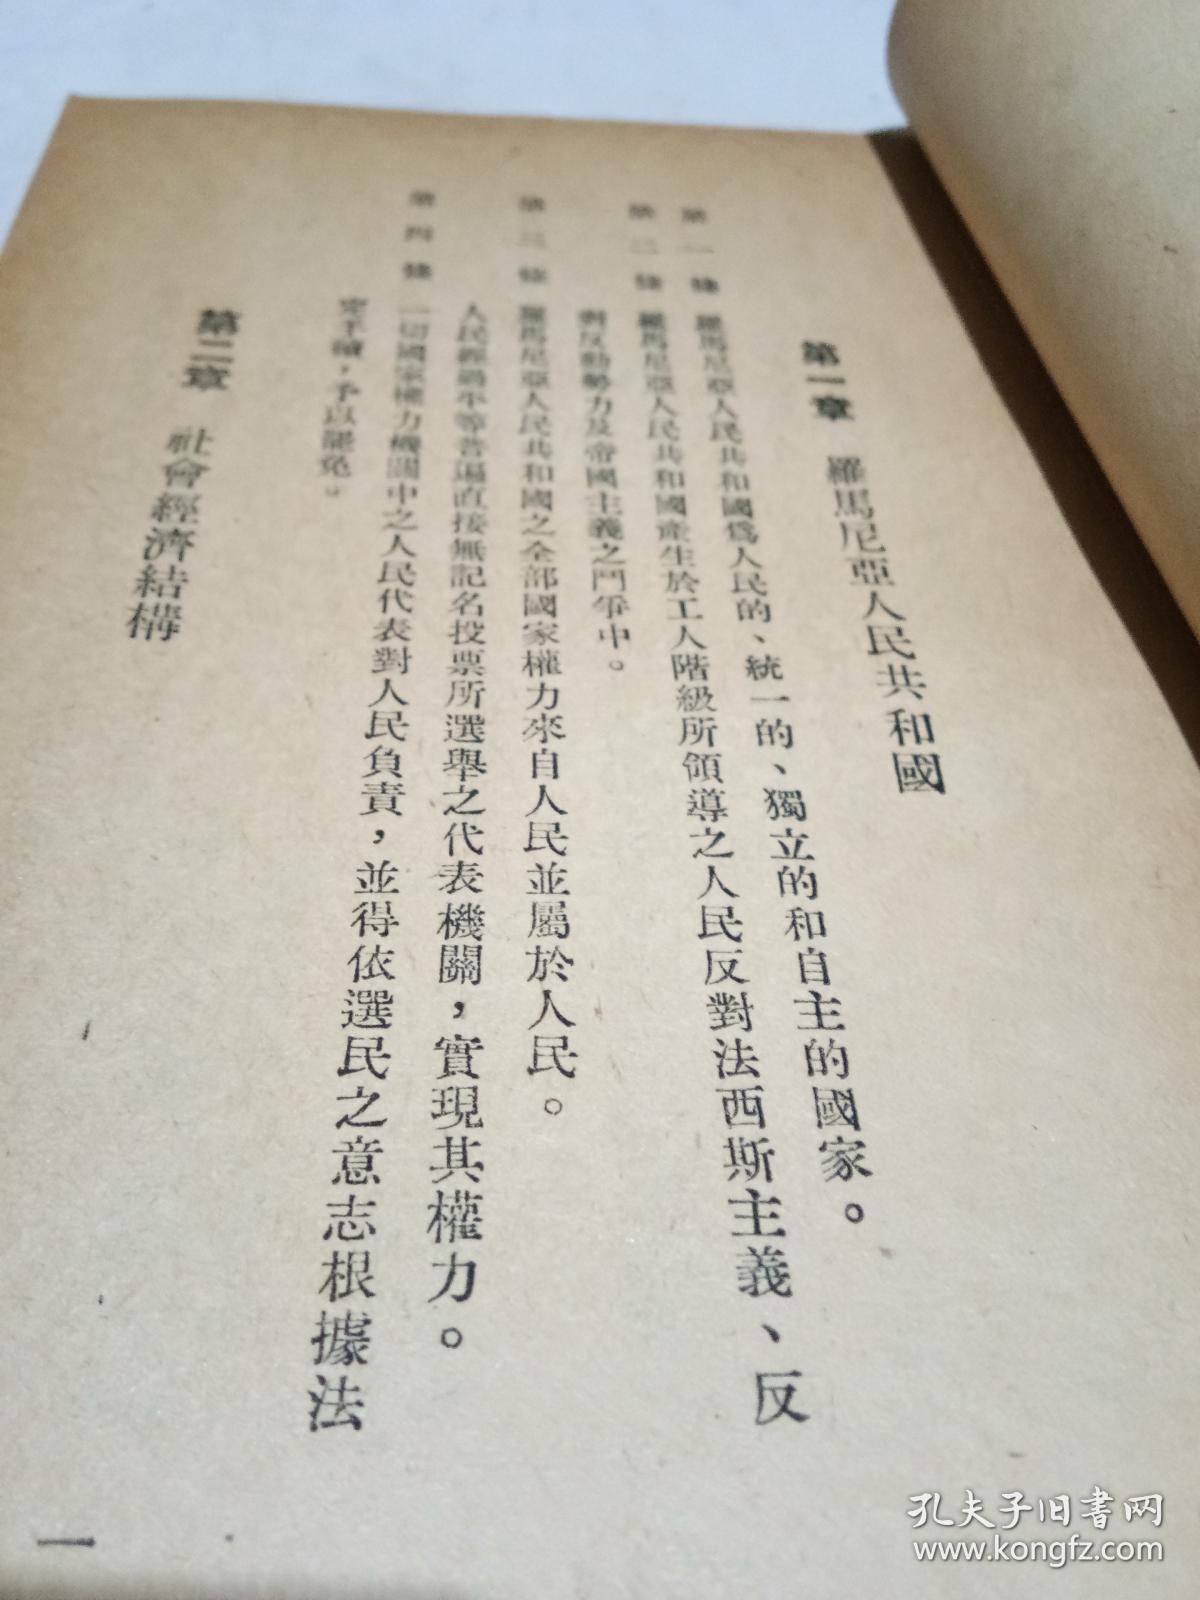 第一章　羅馬尼亞人民共和國
第一條　羅馬尼亞人民共和國爲人民的、統一的、獨立的和自主的國家。
第二條　羅馬尼亞人民共和國產生於工人階級所領導之人民反對法西斯主義、反
對反動勢力及帝國主義之鬥爭中。
第三條　羅馬尼亞人民共和國之全部國家權力來自人民並屬於人民。
人民經過平等普遍直接無記名投票所選舉之代表機關，實現其權力。
第四條　一切國家權力機關中之人民代表對人民負責，並得依選民之意志根據法
定手續，予以罷免。
第二章　社會經濟結構
一
孔夫子旧书网
www.kongfz.com